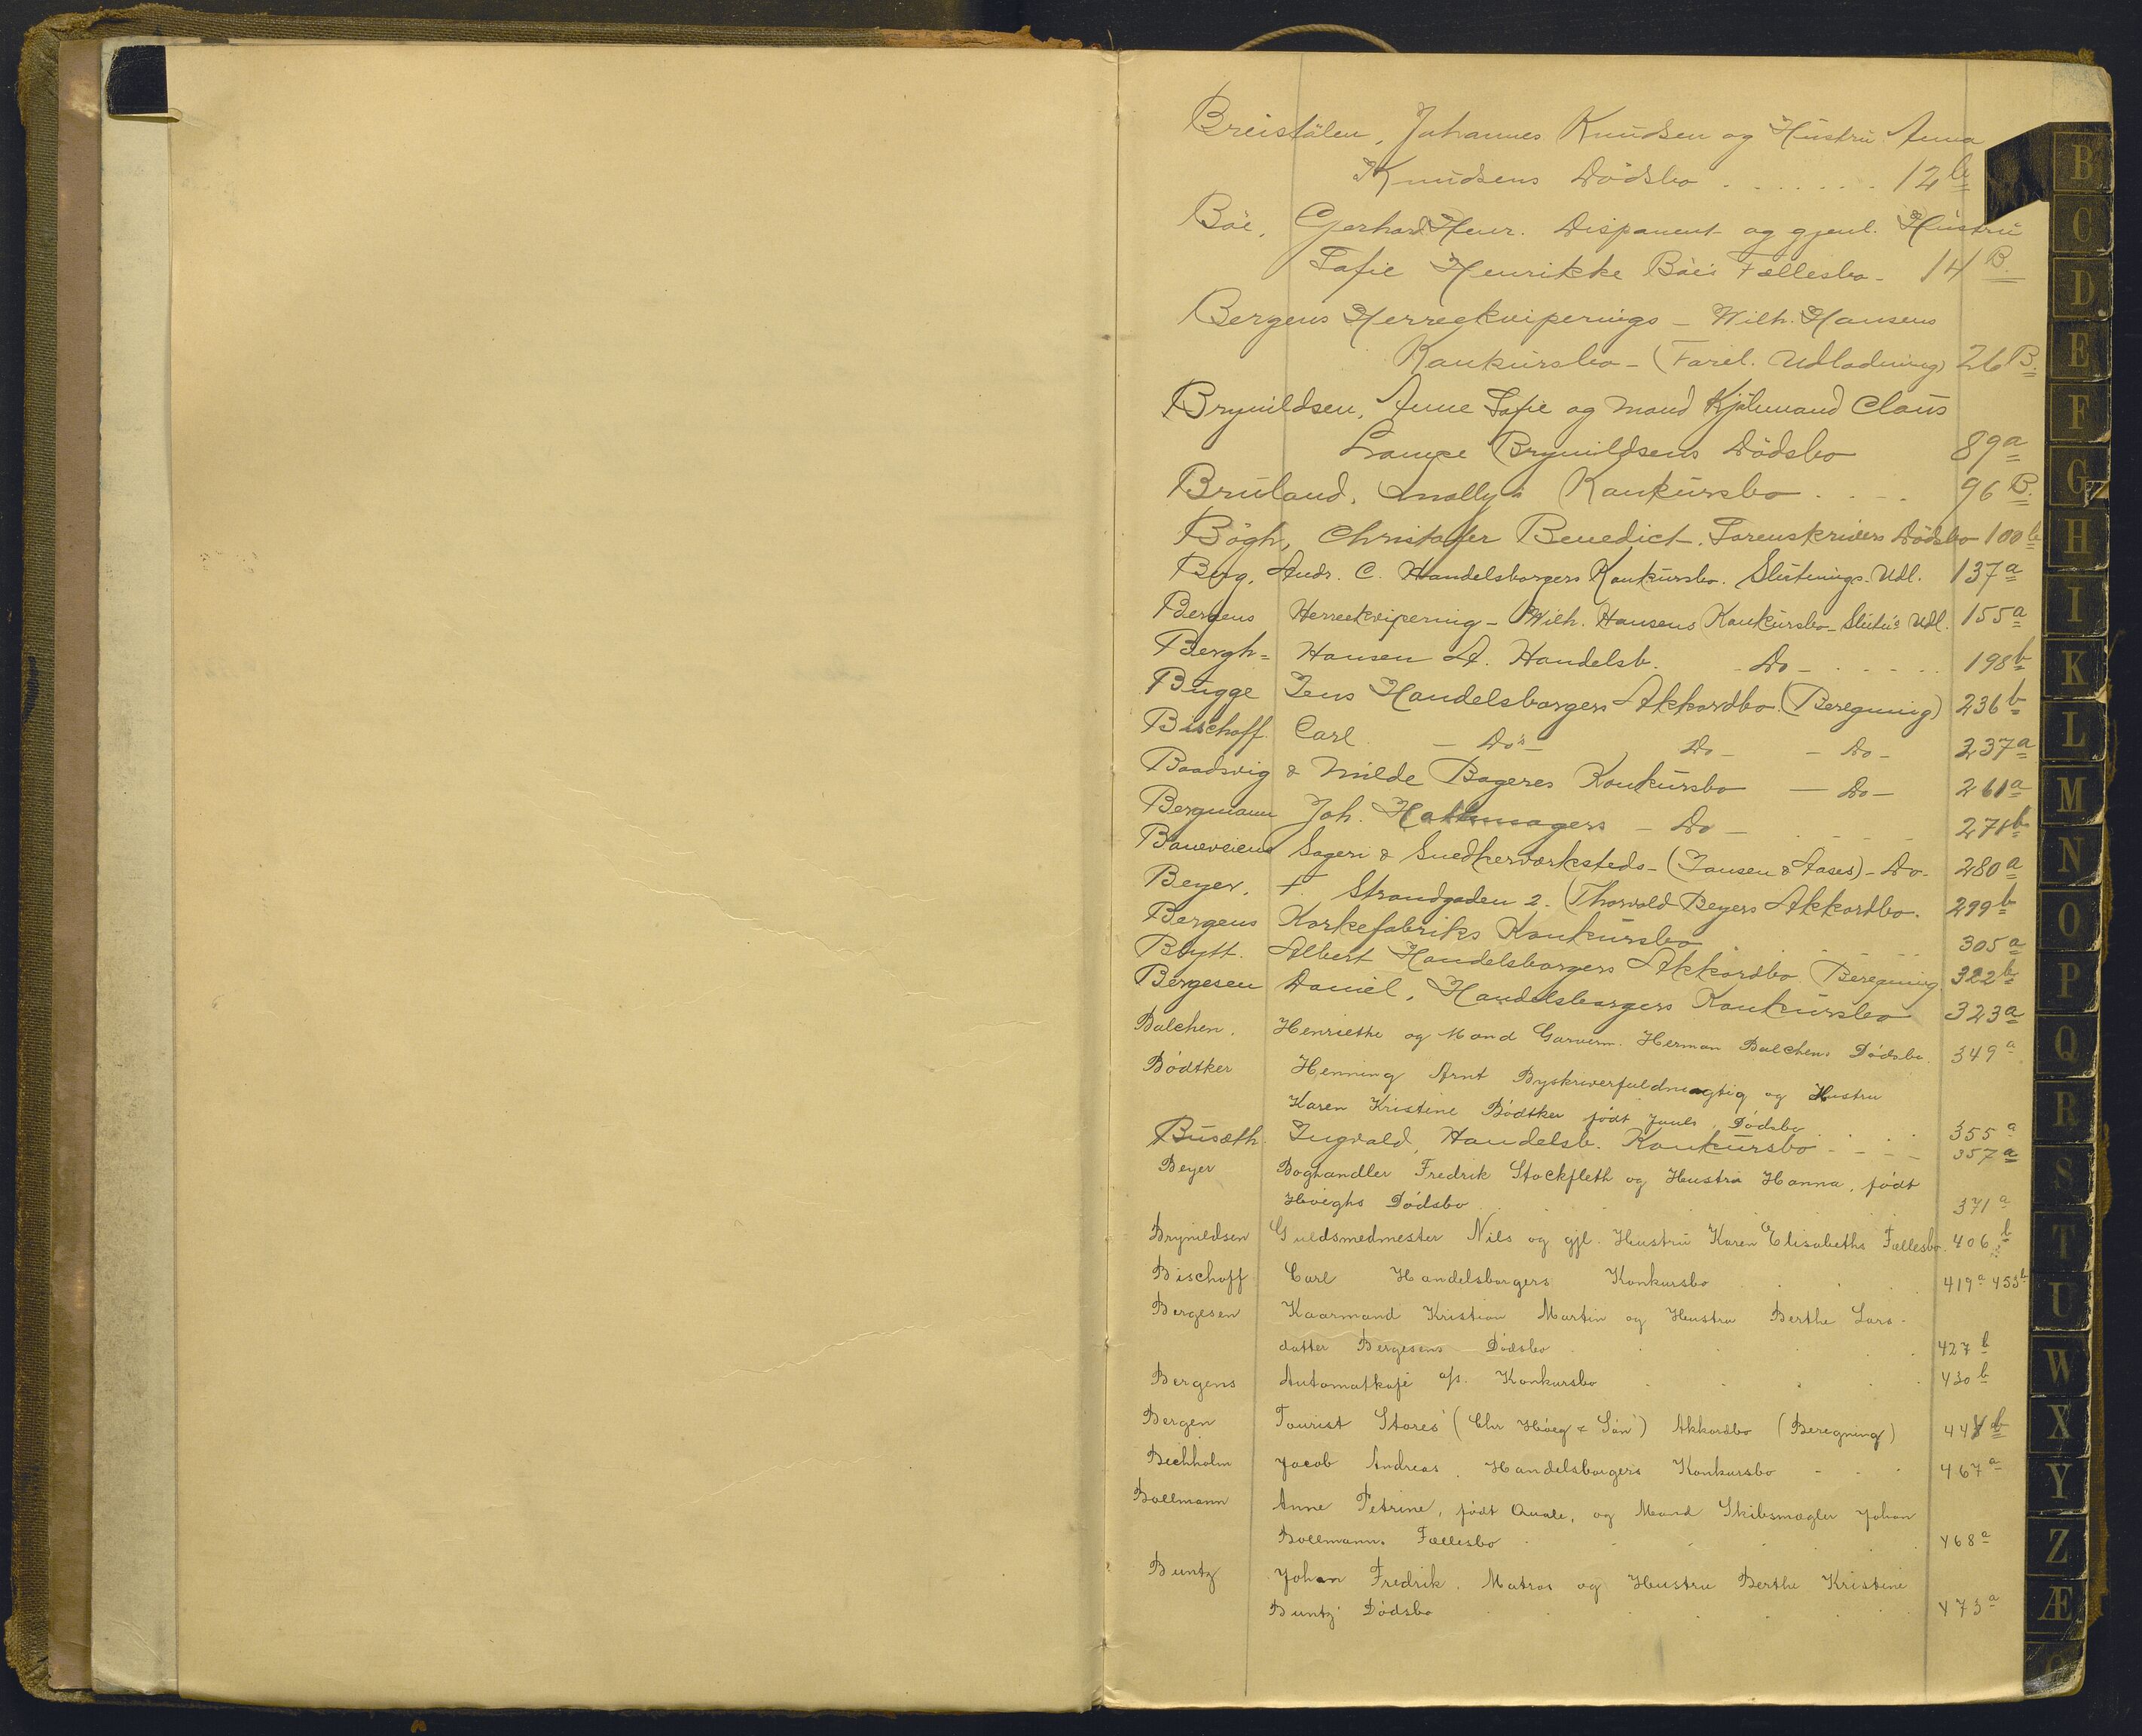 Breistölen, Johannes Knudsen og Hustru Anna
Knudsens Dödsbo . . . . . . . 12 b
Böe, Gerhard Henr. Disponent og gjenl. Hustru
Sofie Henrikke Böes Fællesbo - 14 B.
Bergens Herreekviperings - Wilh. Hansens
Konkursbo - (Forel. Udlodning) 26 B.
Brynildsen, Anne Sofie og Mand Kjölmand Claus
Lampe Brynildsens Dödsbo 89 a
Bruland, Mollys Konkursbo . . - . 96 B.
Bögh, Christoffer Benedict. Sorenskrivers Dödsbo 100 b
Berg, Andr. C. Handelsborgers Konkursbo. Slutnings-Udl. 137 a
Bergens Herreekvipering - Wilh. Hansens Konkursbo - Slutn's Udl. 155 a
Bergh= Hansen A. Handelsb. - Do - . . - . . 198 b
Bugge Jens Handelsborgers Akkordbo. (Beregning) 236 b
Bischoff. Carl - Do's - Do - - Do - 237 a
Baadsvig & Milde Bageres Konkursbo - Do - 261 a
Bergmann Joh. Hattemagers - Do - . . - - 271 b
Baneveiens Sageri & Snedkerværksteds - (Jansen & Aases) - Do - 280 a
Beyer. F Strandgaden 2. (Thorvald Beyers Akkordbo. 299 b
Bergens Korkefabriks Konkursbo . . - . . 305 a
Blytt. Albert Handelsborgers Akkordbo Beregning. 322 b
Bergesen Daniel, Handelsborgers Konkursbo 323 a
Balchen. Henriette og Mand Garverm. Herman Balchens Dödsbo. 349 a
Bödtker Henning Arnt Byskriverfuldmægtig og Hustru
Karen Kristine Bödtker födt Juuls Dödsbo . . . . 355 a
Busæth. Ingvald, Handelsb. Konkursbo - - - - 357 a
Beyer Boghandler Fredrik Stockfleth og Hustru Hanna, födt
Hveighs Dödsbo . . . . . 371 a
Brynildsen Guldsmedmester Nils og gjl. Hustru Karen Elisabeths Fællesbo. 406 b
Bischoff Carl Handelsborgers Konkursbo . . . 419 a 453 b
Bergesen Kaarmand Kristian Martin og Hustru Berthe Lars-
datter Bergesens Dödsbo . . . . . 427 b
Bergens Automatkafe a/s. Konkursbo . . . . . 430 b
Bergen Tourist Stores (Chr Höeg & Sön) Akkordbo (Beregning) 444 b
Bechholm Jacob Andreas. Handelsborgers Konkursbo - . . 467 a
Bollmann Anne Petrine, födt Quale, og Mand Skibsmægler Johan
Bollmanns Fællesbo . . . . . . 468 a
Buntz Johan Fredrik. Matros og Hustru Berthe Kristine
Buntz' Dödsbo . . . . . . 473 a
B
C
D
E
F
G
H
I
K
L
M
N
O
P
Q
R
S
T
U
W
X
Y
Z
Æ